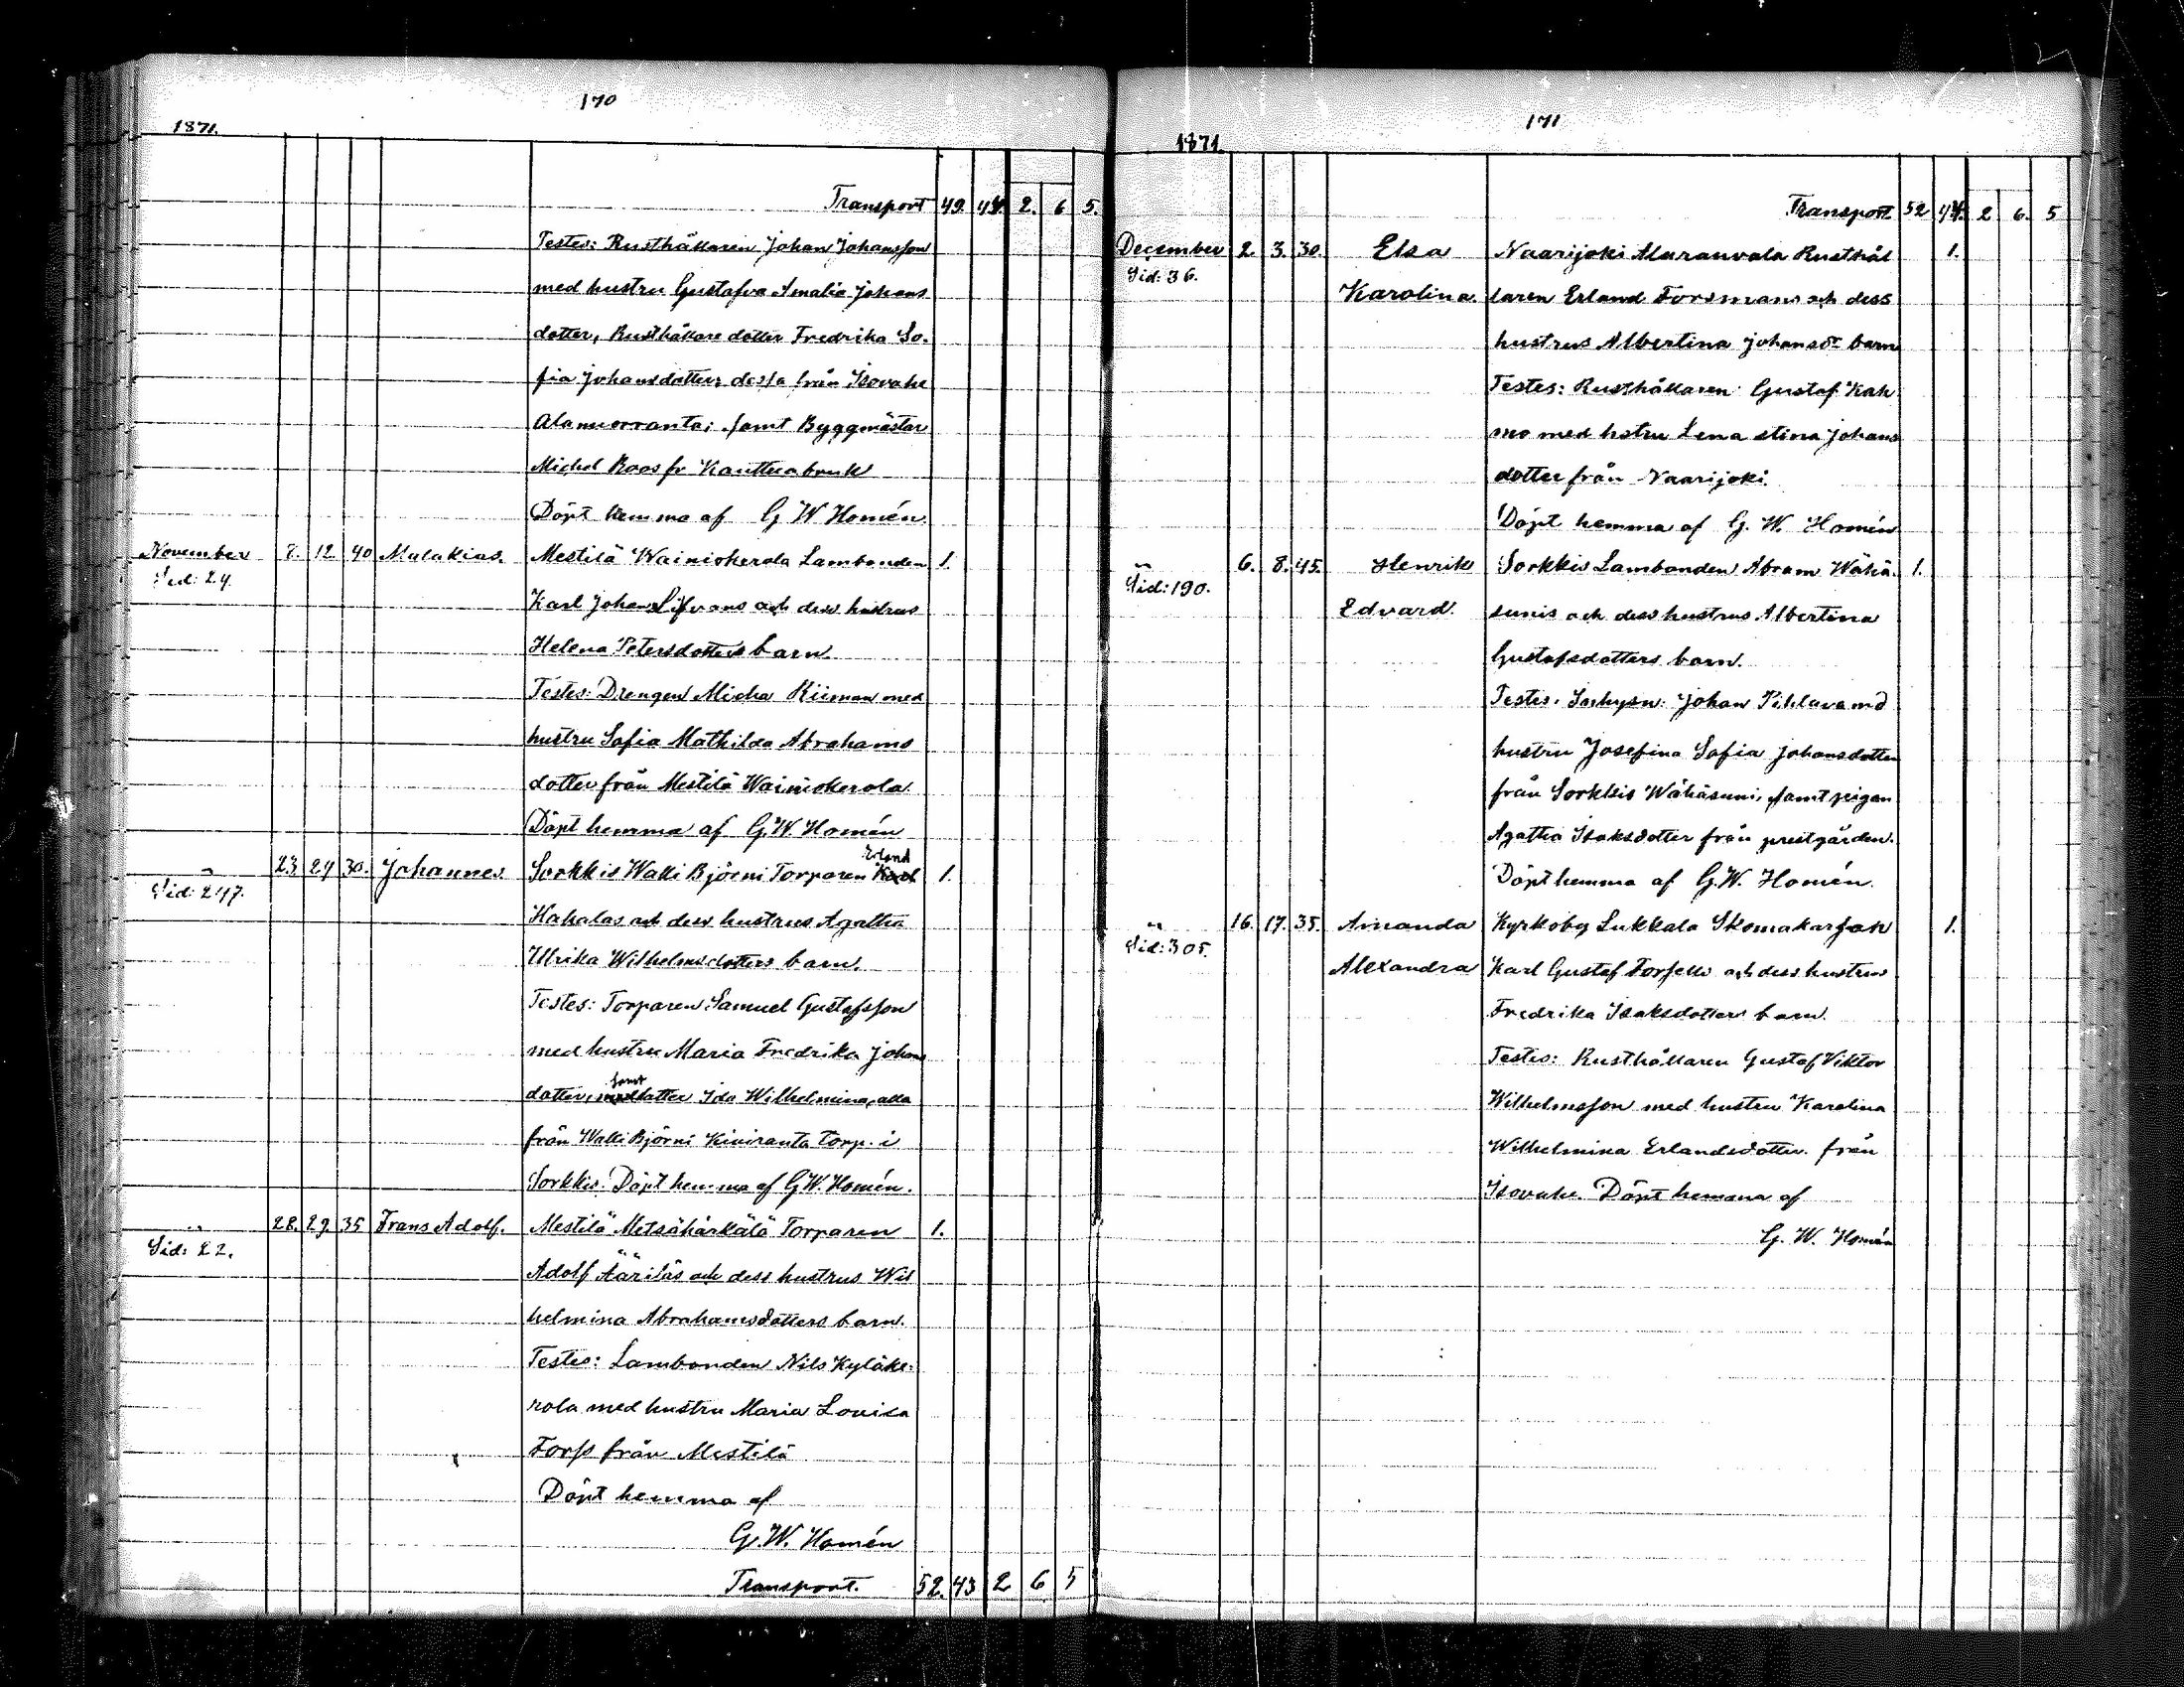 170
1871.
Transport 49. 43. 2. 6 5.
Testes: Rusthållaren Johan Johansson
med hustru Gustafva Amalia Johans
dotter, Rusthållare dotter Fredrika So-
fia Johansdotter, dessa från Isovahe
Alanuorranta; samt Byggmästar
Michel Roos fr Kauttua bruk
Döpt hemma af G W Homén.
November 7. 12 40 Malakias. Mestilä Wainiokerola Lambonden 1.
Sid: 24.
Karl Johan Lifvons och dess hustrus
Helena Petersdotters barn.
Testes: Drengen Micha Riiman med
hustru Sofia Mathilda Abrahams
dotter från Mestilä Wainiokerola.
Döpt hemma af G.W. Homén
Erland
" 23 24 30. Johannes. Sorkkis Walli Björni Torparen Karl 1.
Sid: 247.
Kahalas och dess hustrus Agatha
Ulrika Wilhelmsdotters barn.
Testes: Torparen Samuel Gustafsson
med hustru Maria Fredrika Johans
samt
dotter, med dotter Ida Wilhelmina, alla
från Walli Björni Kiviranta torp. i
Sorkkis. Döpt hemma af G.W. Homén.
" 28. 29. 35 Frans Adolf. Mestilä Metsähärkälä Torparen 1.
Sid: 22.
Adolf Ääriläs och dess hustrus Wil
helmina Abrahamsdotters barn.
Testes: Lambonden Nils Kyläke-
rola med hustru Maria Lovisa
Forss från Mestilä
Döpt hemma af
G.W. Homén
Transport. 52. 43 2 6 5
171
1871.
Transport. 52 43. 2 6. 5
December 2. 3. 30. Elsa Naarijoki Muranvala Rusthål 1.
Sid: 36.
Karolina. laren Erland Forsmans och dess
hustrus Albertina Johansdr barn
Testes: Rusthållaren Gustaf Kah
mo med hstru Lena Stina Johans
dotter från Naarijoki.
Döpt hemma af G. W. Homén
" 6. 8. 45. Henrik Sorkkis Lambonden Abram Wähä- 1.
Sid: 190.
Edvard. sunis och dess hustrus Albertina
Gustafsdotters barn.
Testes. Inhysn: Johan Pihlava md
hustru Josefina Sofia Johansdotter
från Sorkkis Wähäsuni, samt pigan
Agatha Isaksdotter från prestgården.
Döpt hemma af G.W. Homén.
" 16. 17. 35. Amanda Kyrkoby Lukkala Skomakar 1.
Sid: 305.
Alexandra Karl Gustaf Forsells och dess hustrus
Fredrika Isaksdotters barn.
Testes: Rusthållaren Gustaf Viktor
Wilhelmsson med hustru Karolina
Wilhelmina Erlandsdotter från
Isovahe. Döpt hemma af
G. W. Homén